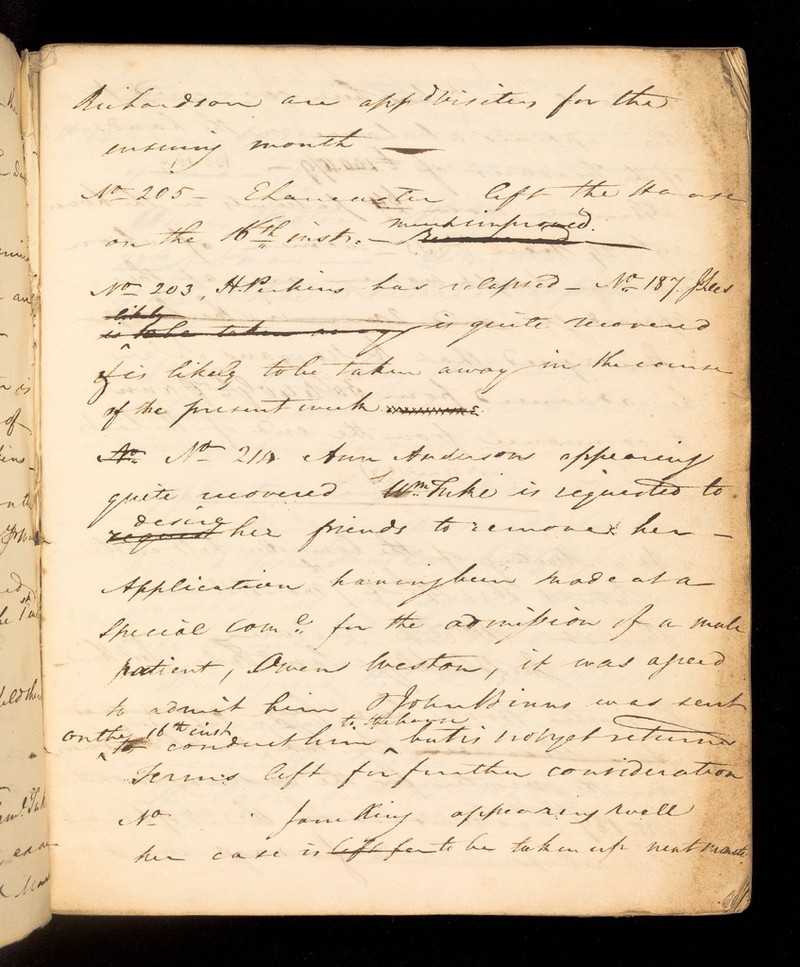 Richardson are appd visiters for the
ensuing month —
No 205 - E Lancaster left the House
on the 16th instt. - much improved.
No 203, H. Perkins has relapsed - No 187. J Lees
likely
is to be taken away is quite recovered
& is likely to be taken away in the course
of the present week
No No 211 Ann Anderson appearing
quite recovered Wm Tuke is requested to
desire
request her friends to remove her -
Application having been made at a
Special Come. for the admission of a male
patient, Owen Weston, it was agreed
to admit him & John Binns was sent
on the 16th inst to the house
to conduct him but is not yet returned
Terms left for further consideration
No Jane King appearing well
her case is left for to be taken up next month